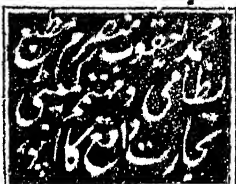 محمد یعقوب منصرم مطبع
نظامی و مقیم کمپنی
تجارت واقع کانپور